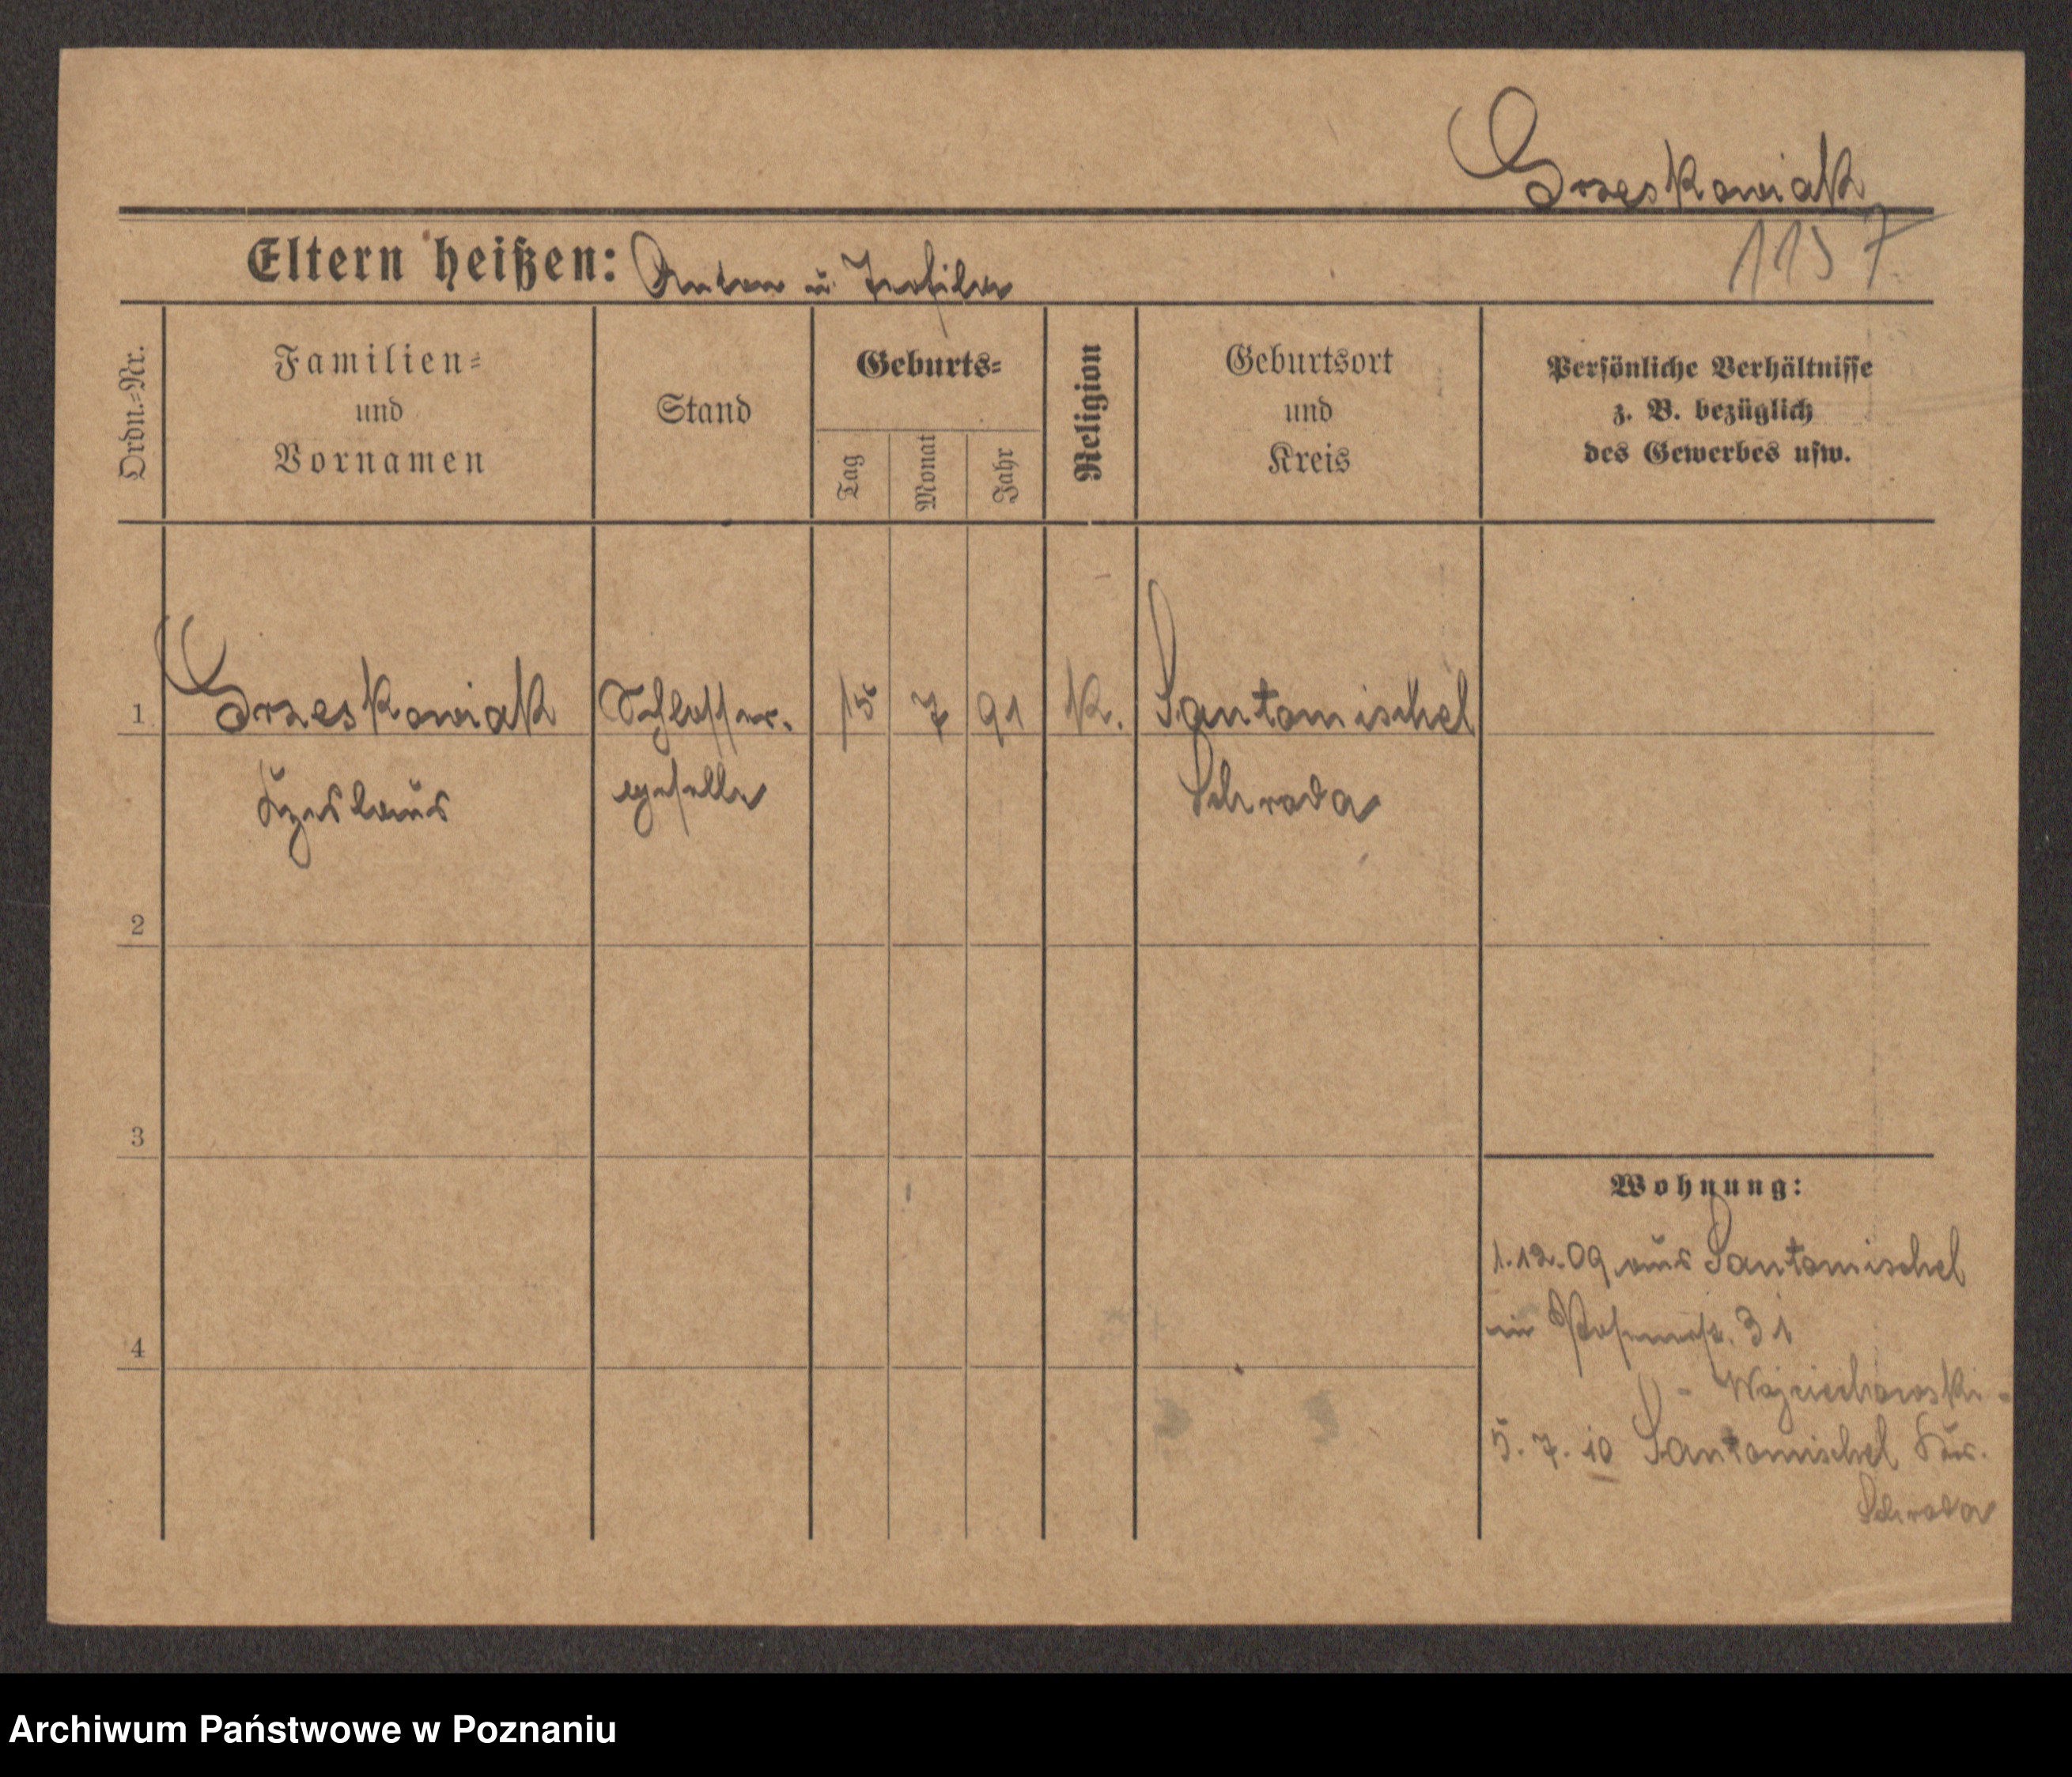 Grzeskowiak
1157
Eltern heißen: Anton u Teofila
Ordn.-Nr.
Familien-
und
Vornamen
Stand
Geburts-
Tag
Monat
Jahr
Religion
Geburtsort
und
Kreis
Persönliche Verhältnisse
z. B. bezüglich
des Gewerbes usw.
1 Grzeskowiak Schlosser- 15 7 91 K. Santomischel
Czeslaus geselle Schroda
2
3
4
Wohnung:
1.12.09 aus Santomischel
in Posenerstr. 31
- Wojciechowski -
5. 7. 10 Santomischel Krs.
Schroda
Archiwum Państwowe w Poznaniu